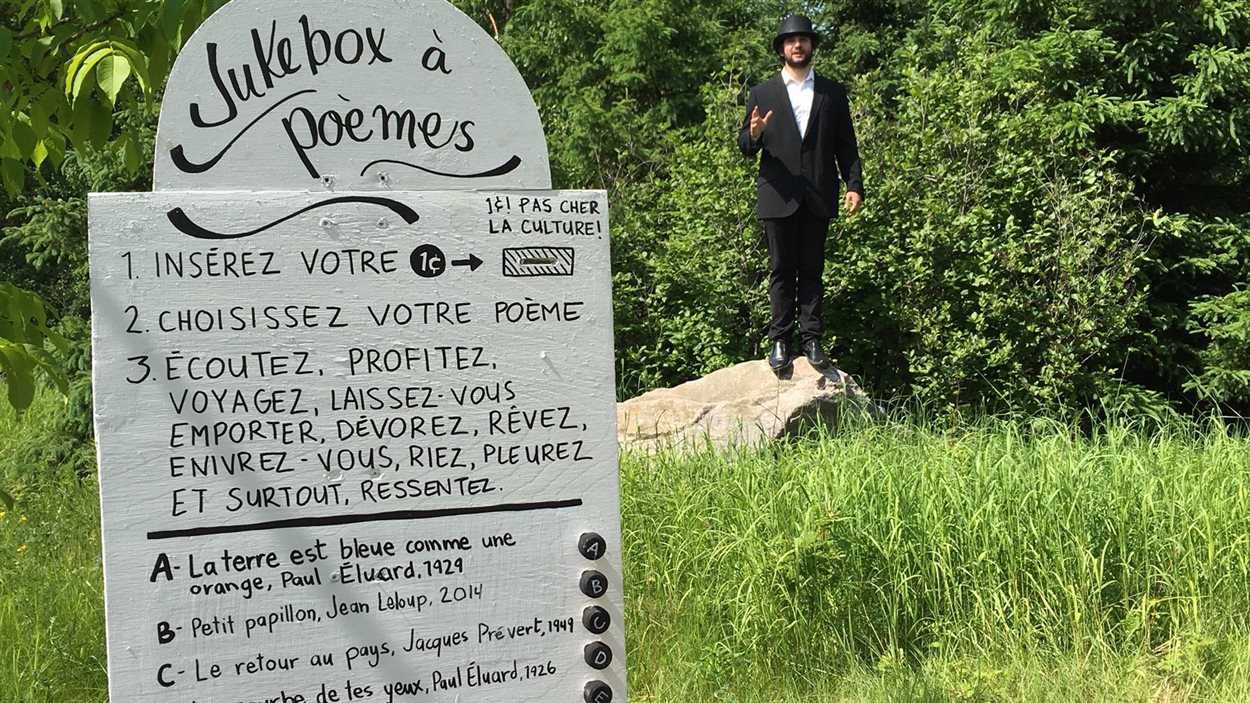 Jukebox à
poèmes
1¢! PAS CHER
LA CULTURE!
1. INSÉREZ VOTRE 1¢ →
2. CHOISISSEZ VOTRE POÈME
3. ÉCOUTEZ, PROFITEZ,
VOYAGEZ, LAISSEZ-VOUS
EMPORTER, DÉVOREZ, RÊVEZ,
ENIVREZ-VOUS, RIEZ, PLEUREZ
ET SURTOUT, RESSENTEZ.
A- La terre est bleue comme une
orange, Paul Éluard, 1929
A
B- Petit papillon, Jean Leloup, 2014
B
C- Le retour au pays, Jacques Prévert, 1949
C
de tes yeux, Paul Éluard, 1926
D
E